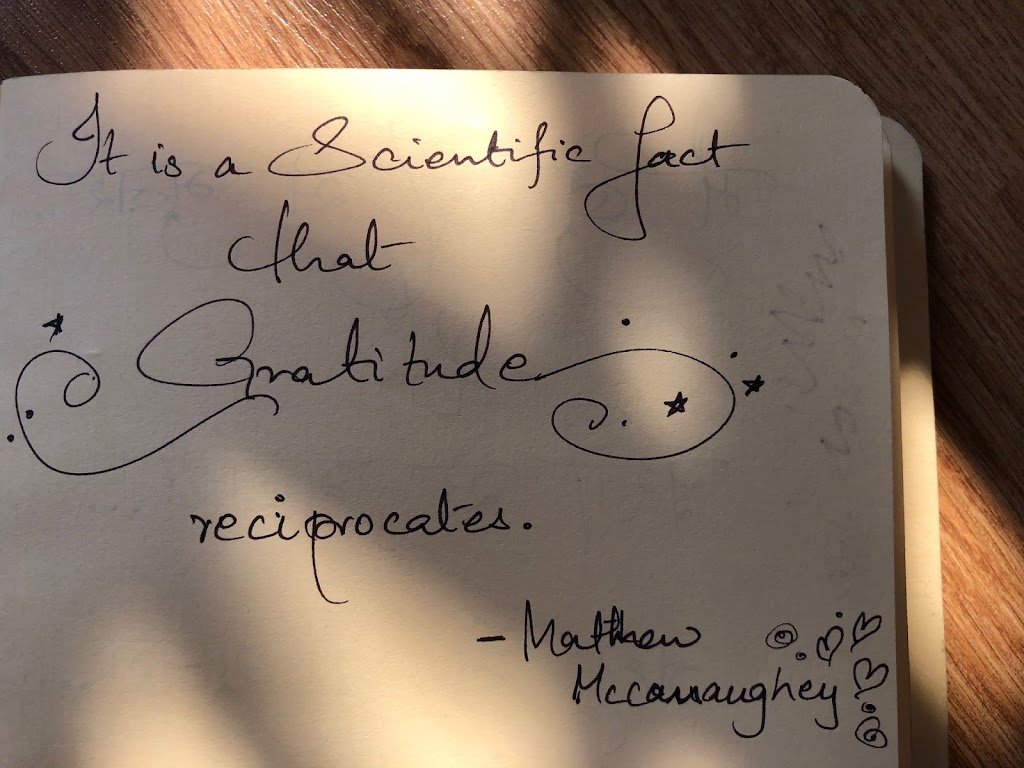 It is a Scientific fact
that
Gratitude
reciprocates.
- Matthew
Mcconaughey